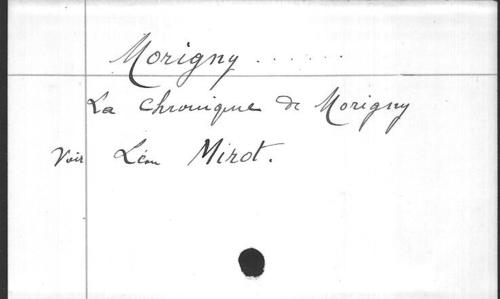 Morigny .......
La Chronique de Morigny
Voir Léon Mirot.